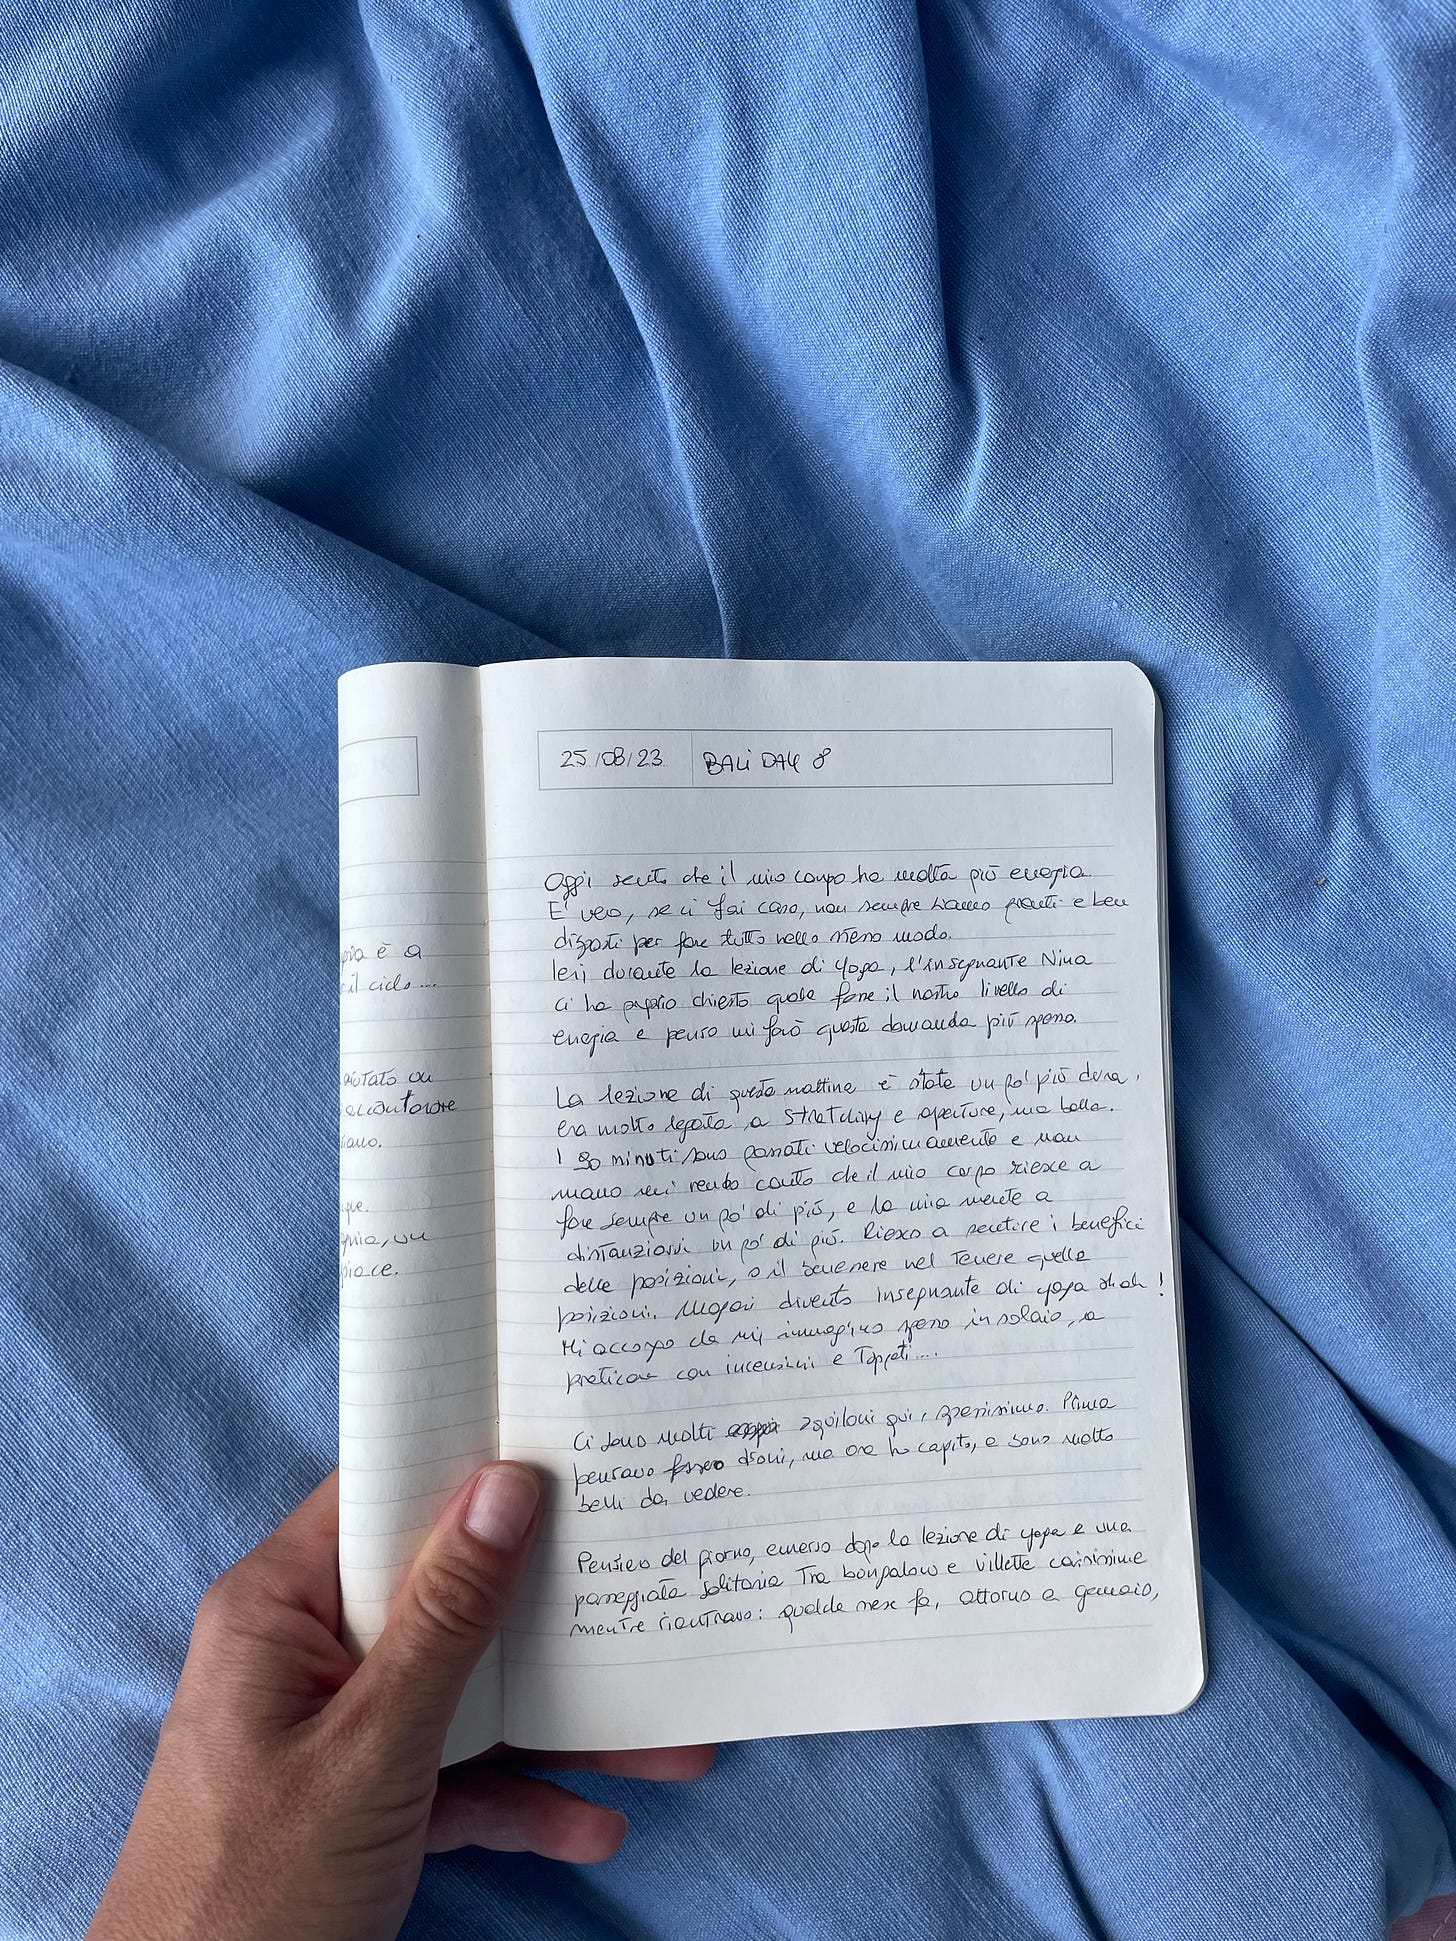 25/08/23 BALI DAY 8
Oggi sento che il mio corpo ha molta più energia.
E' vero, se ci fai caso, non sempre siamo pronti e ben
disposti per fare tutto nello stesso modo.
Ieri durante la lezione di yoga, l'insegnante Nina
ci ha proprio chiesto quale fosse il nostro livello di
energia e penso mi farò questa domanda più spesso.
La lezione di questa mattina è stata un po' più dura,
era molto legata a stretching e aperture, ma bella.
I 90 minuti sono passati velocissimamente e man
mano mi rendo conto che il mio corpo riesce a
fare sempre un po' di più, e la mia mente a
distanziarsi un po' di più. Riesco a sentire i benefici
delle posizioni, o il benessere nel tenere quelle
posizioni. Magari divento insegnante di yoga ahah!
Mi accorgo che mi immagino spesso in solaio, a
praticare con incensini e tappeti....
Ci sono molti aquiloni qui, spessissimo. Prima
pensavo fossero droni, ma ora ho capito, e sono molto
belli da vedere.
Pensiero del giorno, emerso dopo la lezione di yoga e una
passeggiata solitaria tra bungalow e villette carinissime
mentre rientravo: qualche mese fa, attorno a gennaio,
è a
il ciclo...
aiutato an
.
un
piace.